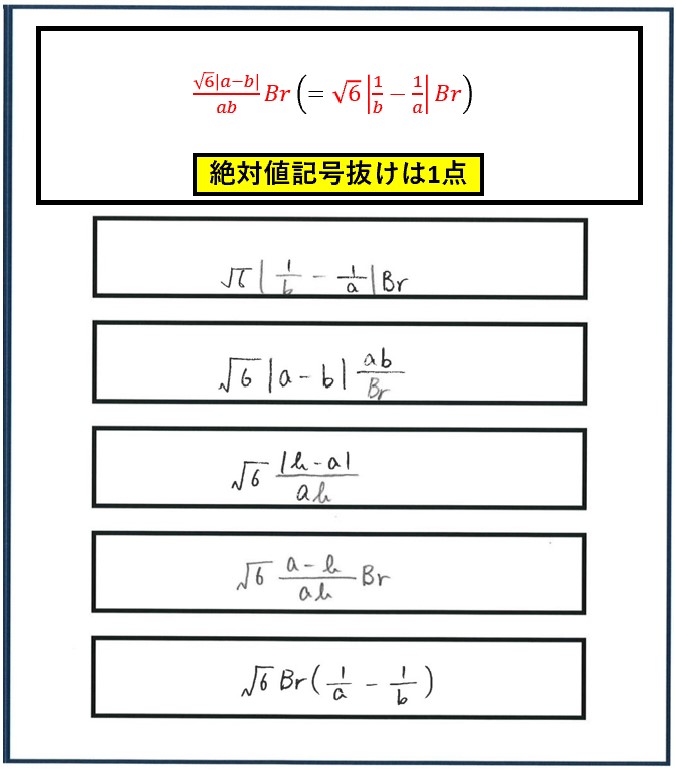 √6|a−b|/ab Br (= √6 |1/b − 1/a| Br)
絶対値記号抜けは1点
√6 | 1/b − 1/a | Br
√6 |a − b| ab/Br
√6 |b − a|/ab
√6 a − b/ab Br
√6 Br ( 1/a − 1/b )